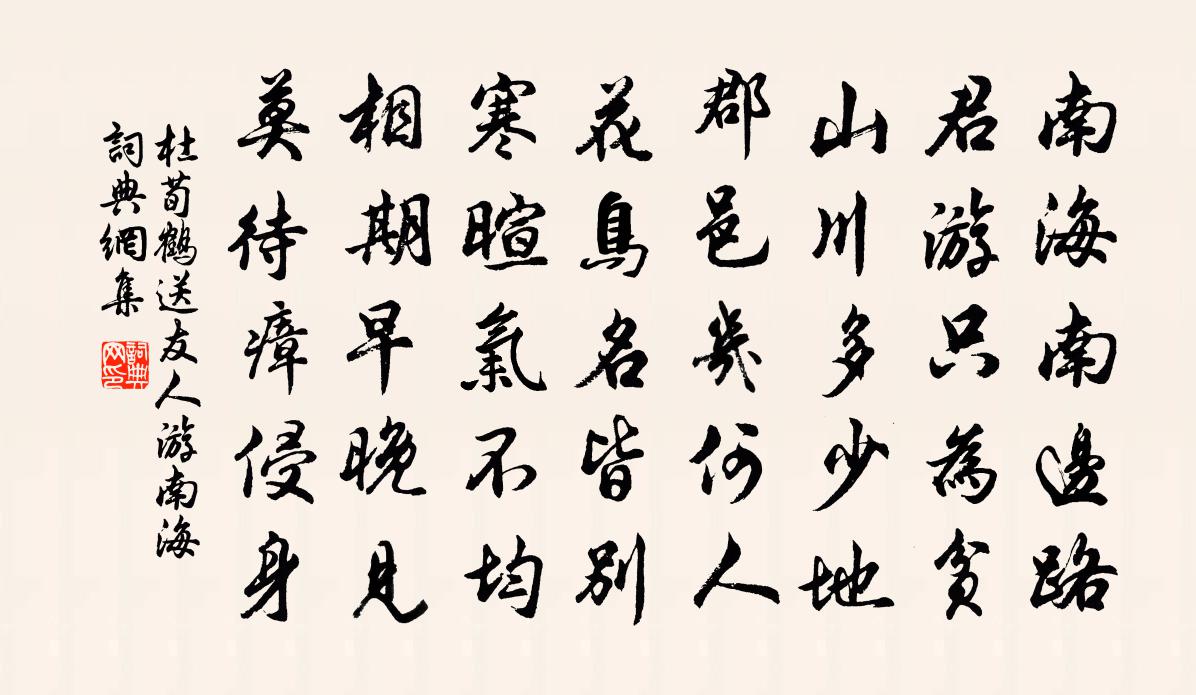 南海南邊路
君游只為貧
山川多少地
郡邑幾何人
花鳥名皆別
寒暄氣不均
相期早晚見
莫待瘴侵身
杜荀鶴送友人游南海
詞典網集
詞典
网印